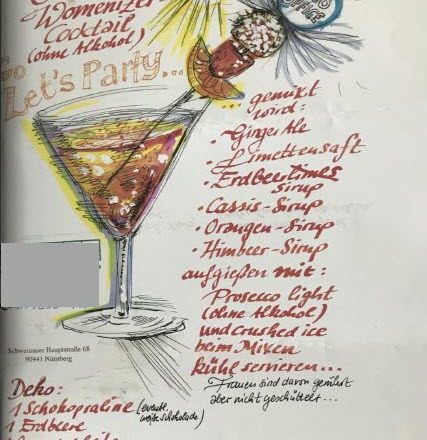 Womenizer
Cocktail
(ohne Alkohol)
Go
Let's Party...
OFFICE
... gemixt
wird:
• Ginger Ale
• Limettensaft
• Erdbeer
Sirup
• Cassis-Sirup
• Orangen-Sirup
• Himbeer-Sirup
aufgießen mit:
Prosecco light
(ohne Alkohol)
und crushed ice
beim Mixen
kühl servieren...
Frauen sind davon gerührt
aber nicht geschüttelt...
Schweinauer Hauptstraße 68
90441 Nürnberg
Deko:
1 Schokopraline (evtl.
weiße Schokolade)
1 Erdbeere